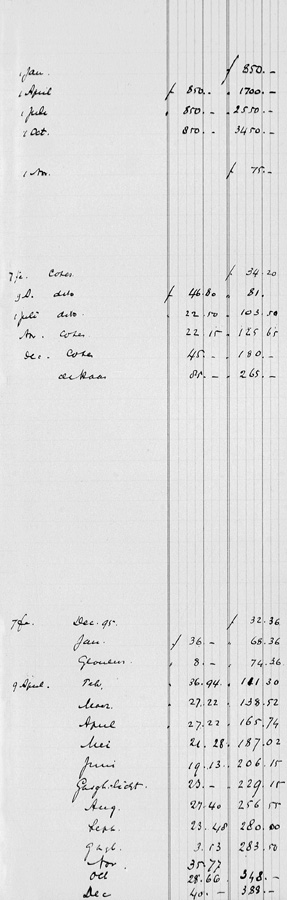 1 Jan. f 850.-
1 April f 850.. 1700.-
1 Juli 850.- 2550.-
1 Oct. 850.- 3450.-
1 Nov. f 75.-
7 Ja. Cokes f 34.20
9 D. dito f 46.80 81.
1 Juli dito. 22.50 103.50
Nov. Cokes 22.15 125.65
Dec. Cokes 45.- 180.-
85.- 265.-
7 Ja. Dec. 95. f 32.36
Jan. f 36.- 68.36
8.- 74.36
9 April. Feb. 36.94 111.30
Maar. 27.22 138.52
April 27.22 165.74
Mei 21.28 187.02
Juni 19.13 206.15
23.- 229.15
Aug. 27.40 256.55
Sept. 23.48 280.00
3.13 283.50
Nov. 35.77
Oct 28.66 348.-
Dec 40.- 388.-